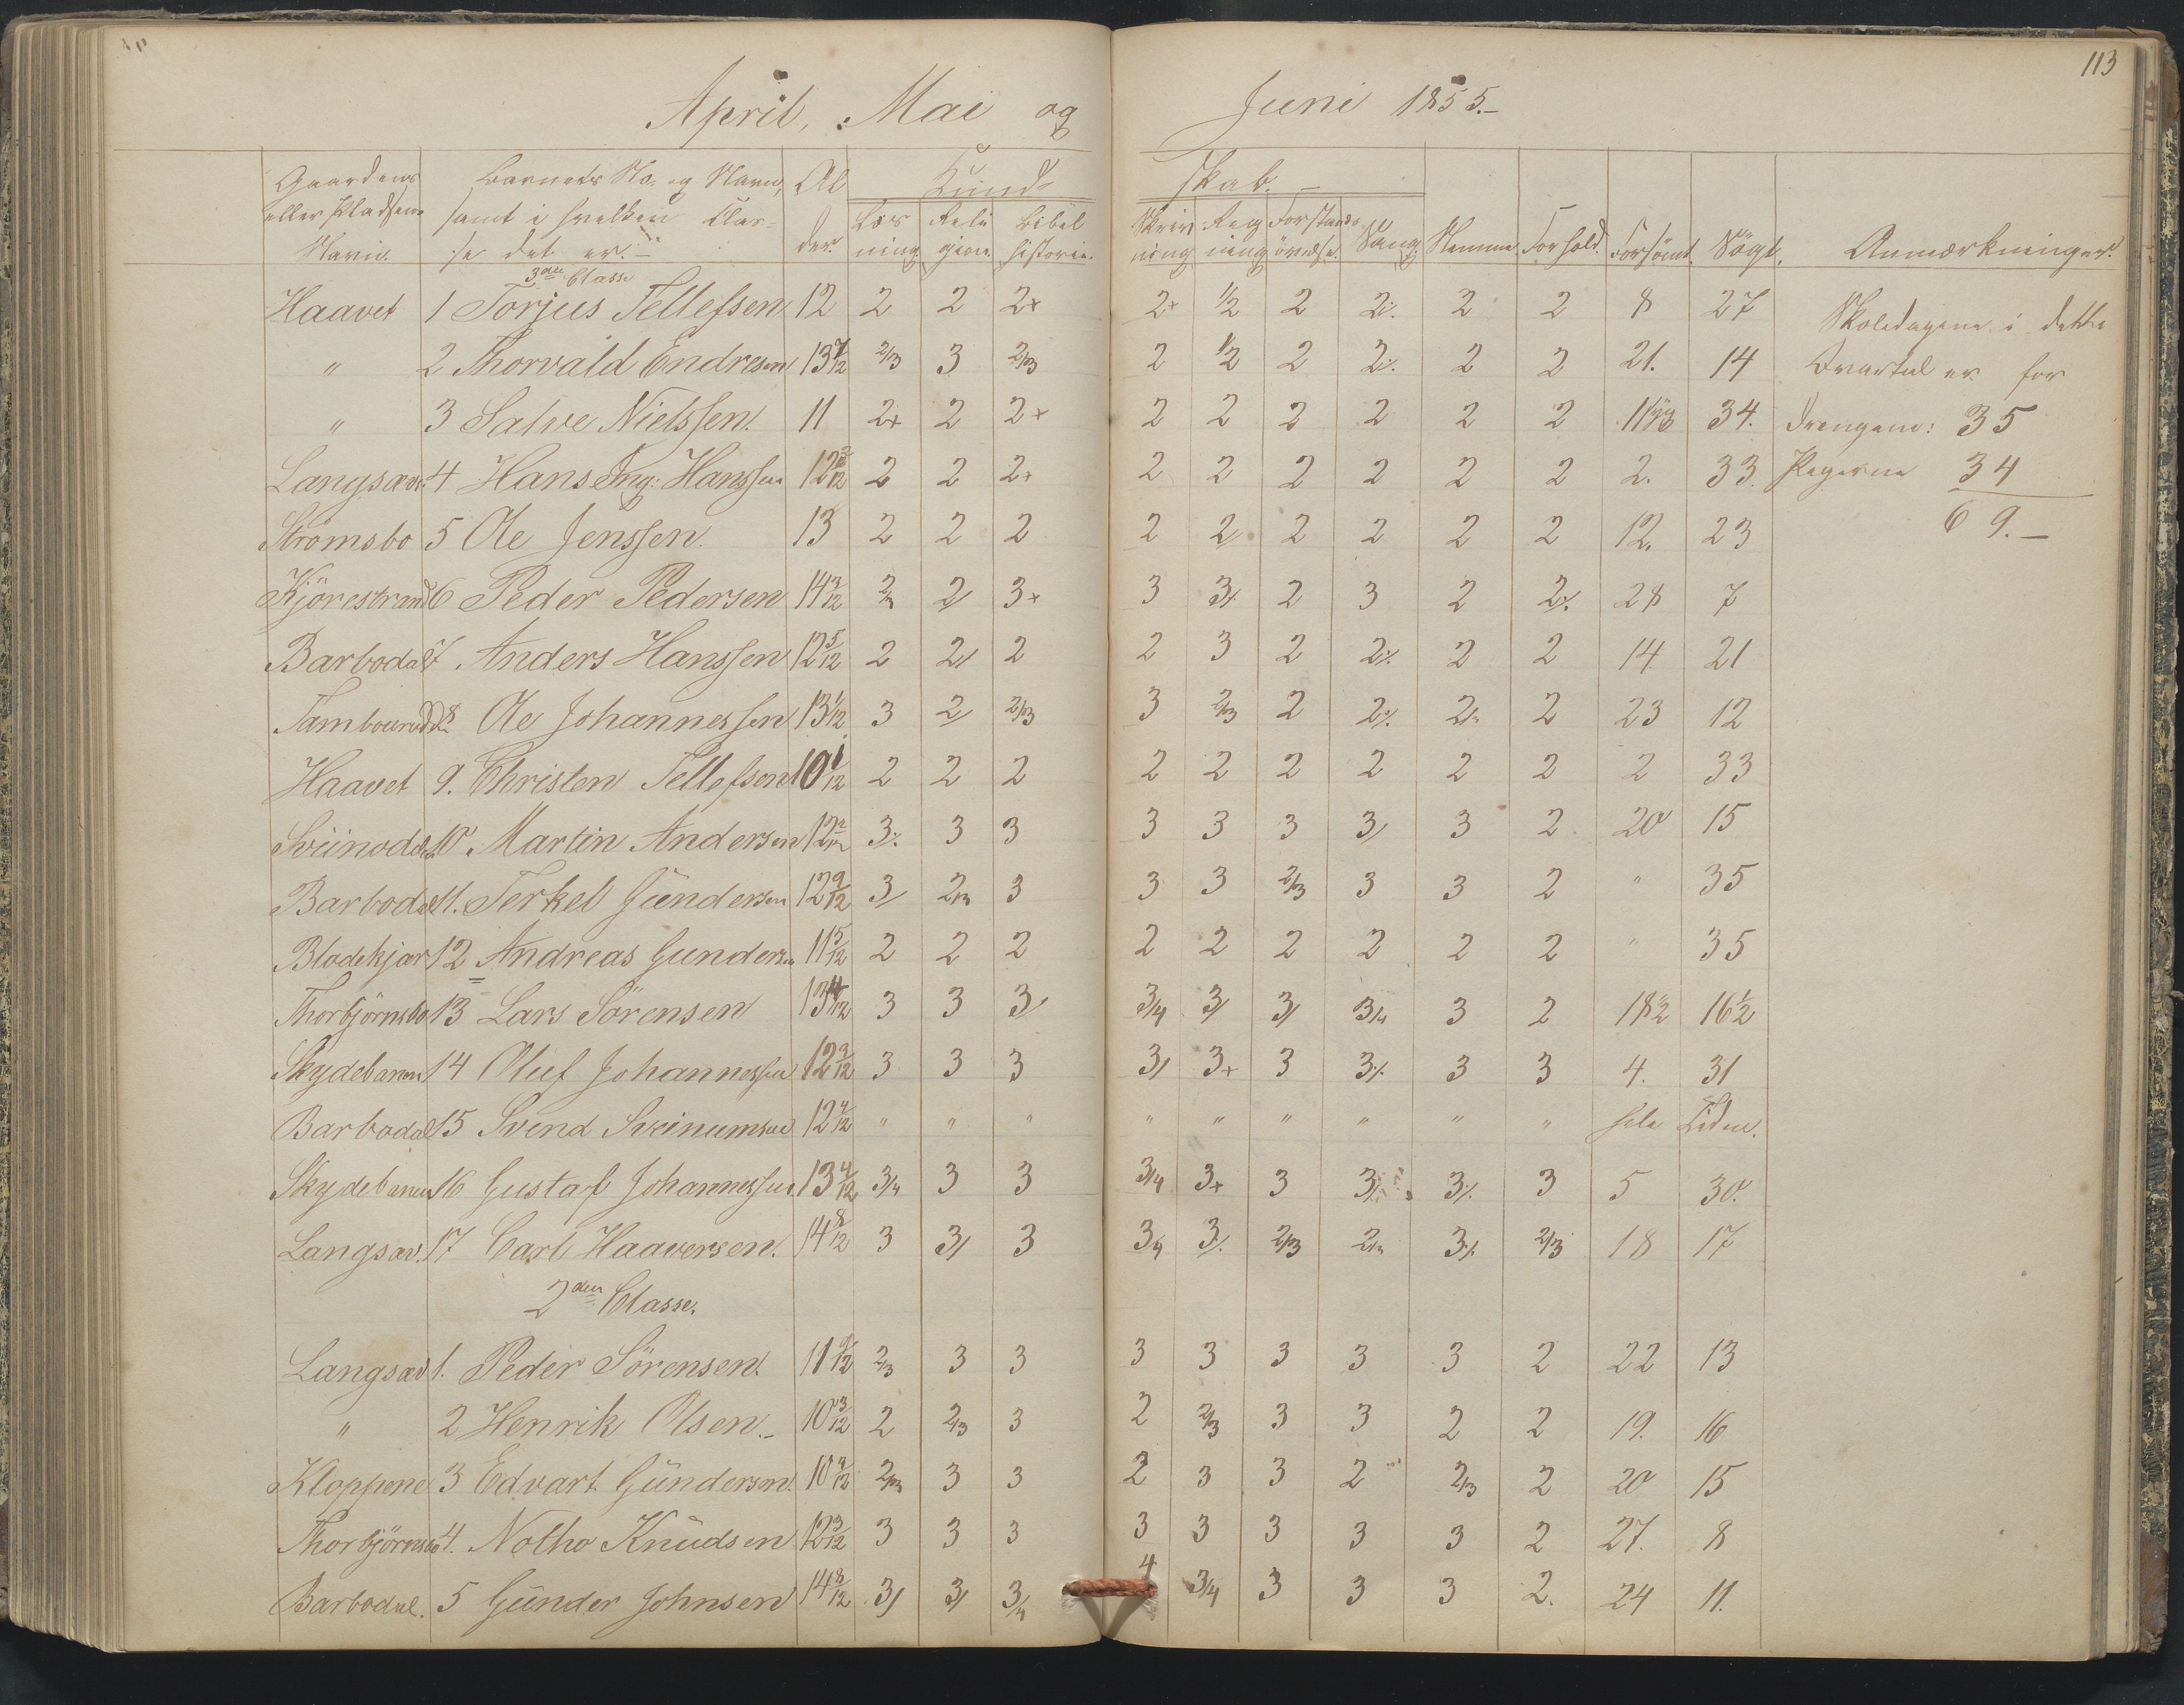 113
April, Mai og Juni 1855.-
Gaardens eller Pladsens Navn. | Barnets No. og Navn, samt i hvilken Clas-se det er.- | Al der. | Kund- skab.-
Læs ning. | Reli gion. | Bibel historie. | Skriv ning | Reg ning | Forstands övelse. | Sang. | Nemme. | Forhold. | Forsömt. | Sögt. | Anmærkninger.
3die Classe
Haavet 1 Torjus Tellefsen 12 2 2 2+ 2+ 1/2 2 2% 2 2 8 27 Skoledagene i dette
" 2 Thorvald Endresen 13 7/12 2/3 3 2/3 2 1/2 2 2% 2 2 21. 14 Qvartal er for
" 3 Salve Nielssen. 11 2+ 2 2+ 2 2 2 2 2 2 34. Drengene: 35
Langsæv. 4 Hans Ing: Hanssen 12 2 2 2+ 2 2 2 2 2 2 2. 33. Pigerne 34
Strömsbo 5 Ole Jenssen. 13 2 2 2 2 2 2 2 2 2 12. 23 69.-
Kjörestrand 6 Peder Pedersen 14 3/12 2/3 2/ 3+ 3 3% 2 3 2 2% 28 7
Barbodal 7 Anders Hanssen 12 5/12 2 2/ 2 2 3 2 2% 2 2 14 21
8 Ole Johannessen 13 1/12 3 2/ 2/3 3 2/3 2 2% 2 23 12
Haavet 9. Christen Tellefsen 10 1/12 2 2 2 2 2 2 2 2 2 2 33
10 Martin Andersen 12 3% 3 3 3 3 3 3/ 3 2 20 15
Barbodal 11. Terkel Gundersen 12 9/12 3/ 2/3 3 3 3 2/3 3 3 2 " 35
Blödekjær 12 Andreas Gundersen 11 5/12 2 2 2 2 2 2 2 2 2 " 35
Thorbjörnsbo 13 Lars Sörensen 13 4/12 3 3 3/ 3/4 3/ 3/ 3/4 3 2 18 1/2 16 1/2
Skydebanen 14 Oluf Johannessen 12 3/12 3 3 3 3/ 3+ 3 3% 3 3 4. 31
Barbodal 15 Svend Sveinumsen 12 4/12 " " " " " " " " " hele Tiden.
Skydebanen 16 Gustaf Johannessen. 13 4/12 3/4 3 3 3/4 3+ 3 3% 3% 3 5 30.
Langsæv. 17 Carl Haaversen. 14 8/12 3 3/ 3 3/4 3% 2/3 2/3 3% 2/3 18 17
2den Classe.
Langsæv 1. Peder Sörensen. 11 9/12 2/3 3 3 3 3 3 3 3 2 22 13
" 2 Henrik Olsen.- 10 3/12 2 2/3 3 2 2/3 3 3 2 2 19. 16
Kloppene 3 Edvart Gundersen. 10 2/3 3 3 2 3 3 2 2/3 2 20 15
Thorbjörnsbo 4. Notho Knudsen 12 3/12 3 3 3 3 3 3 3 3 2 27. 8
Barbodal. 5 Gunder Johnsen 14 8/12 3/ 3/ 3/4 4 3/4 3 3 3 2. 24 11.